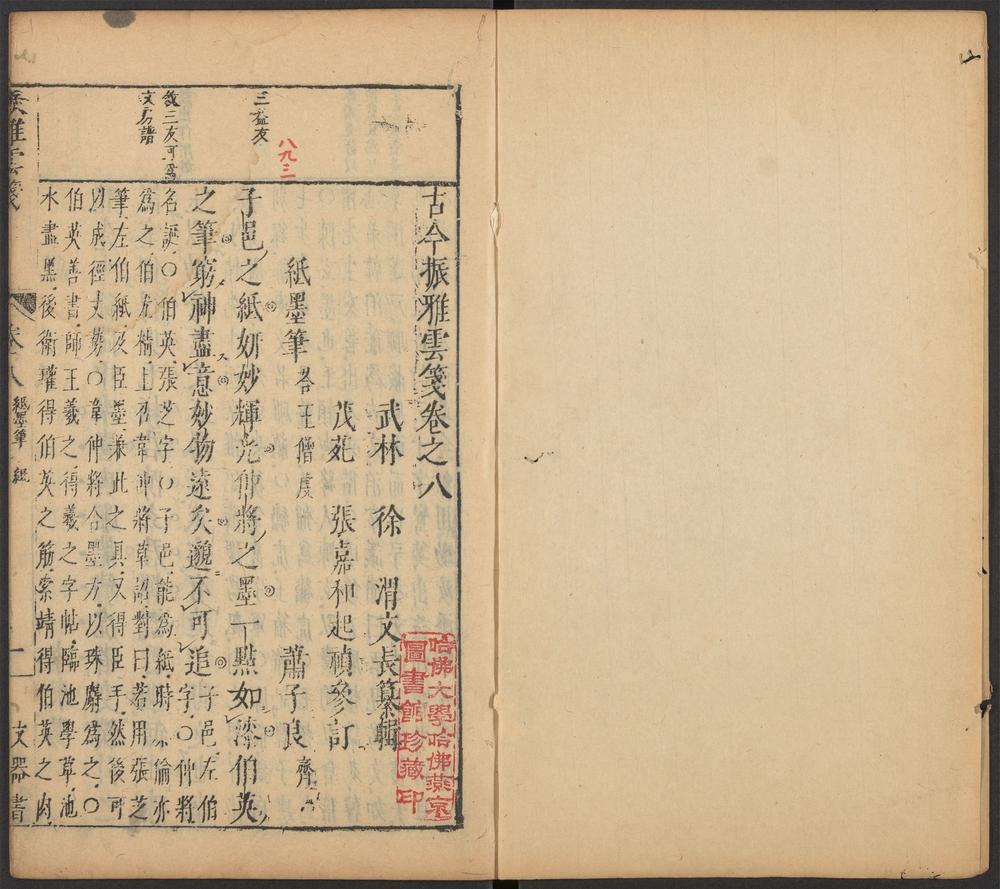 古今振雅雲箋卷之八
武林 徐 渭文長纂輯
茂苑 張嘉和起禎參訂
紙墨筆 答王僧虔 蕭子良 齊
子邑之紙妍妙輝光仲將之墨一點如漆伯英
之筆窮神盡意妙物遠矣邈不可追
子邑左伯
字○仲將
名誕○伯英張芝字○子邑能爲紙時
爲之伯尤精上召韋仲將草詔對曰若用張芝
筆左伯紙及臣墨兼此之具又得臣手然後可
以成徑丈勢○韋仲將合墨方以珠麝爲之○
伯英善書師王羲之得羲之字帖臨池學草池
水盡黑後衛瓘得伯英之筋索靖得伯英之肉
三益友
八九三
三友可爲
文房譜
振雅雲箋
卷八
紙墨筆 紙
一
文器書
哈佛大學哈佛燕京
圖書館珍藏印